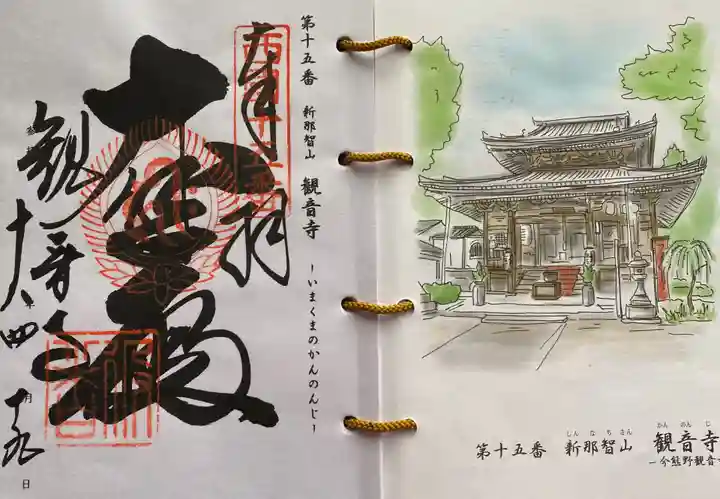 奉拝
大悲殿
観音寺
十八年四月十九日
第十五番 新那智山 観音寺 ーいまくまのかんのんじー
第十五番 新那智山 観音寺
じんなちさん かんのんじ
ー今熊野観音